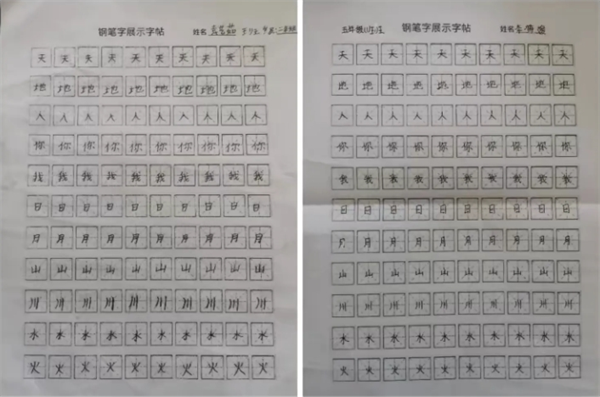 钢笔字展示字帖 姓名
天 天 天 天 天 天 天 天 天 天
地 地 地 地 地 地 地 地 地 地
人 人 人 人 人 人 人 人 人 人
你 你 你 你 你 你 你 你 你 你
我 我 我 我 我 我 我 我 我 我
日 日 日 日 日 日 日 日 日 日
月 月 月 月 月 月 月 月 月 月
山 山 山 山 山 山 山 山 山 山
川 川 川 川 川 川 川 川 川 川
水 水 水 水 水 水 水 水 水 水
火 火 火 火 火 火 火 火 火 火
五年级 钢笔字展示字帖 姓名
天 天 天 天 天 天 天 天 天 天
地 地 地 地 地 地 地 地 地 地
人 人 人 人 人 人 人 人 人 人
你 你 你 你 你 你 你 你 你 你
我 我 我 我 我 我 我 我 我 我
日 日 日 日 日 日 日 日 日 日
月 月 月 月 月 月 月 月 月 月
山 山 山 山 山 山 山 山 山 山
川 川 川 川 川 川 川 川 川 川
水 水 水 水 水 水 水 水 水 水
火 火 火 火 火 火 火 火 火 火